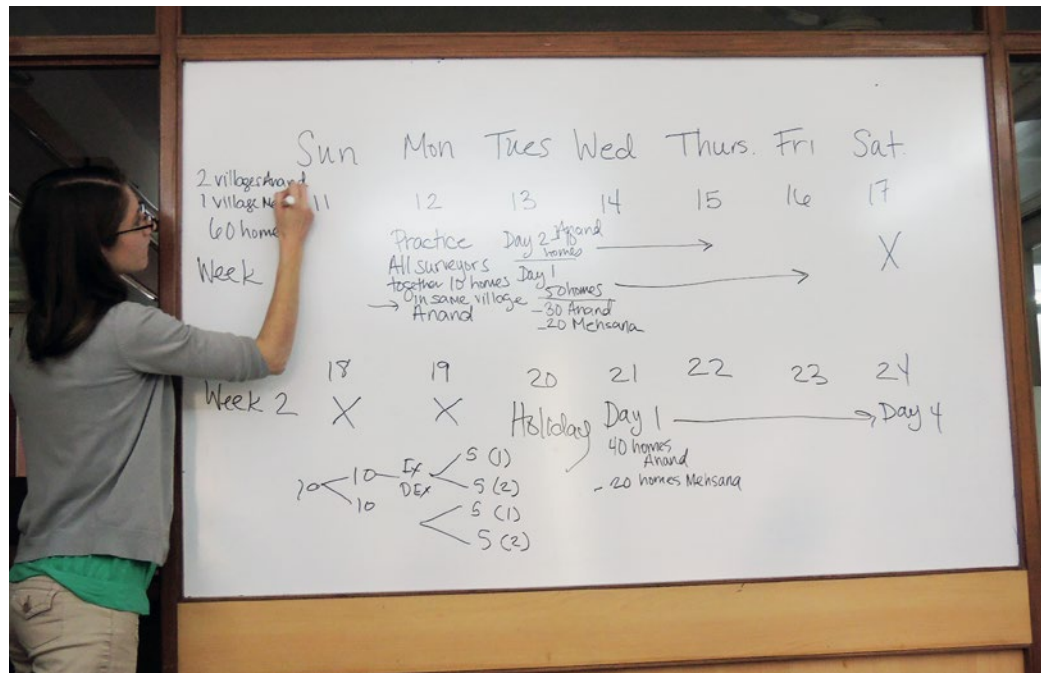 Sun Mon Tues Wed Thurs. Fri Sat.
2 villages Anand
1 village
60 home
Week
11 12 13 14 15 16 17
Practice
All surveyors
together 10 homes
in same village
Anand
Day 2 Anand
10
homes
Day 1
50 homes
-30 Anand
-20 Mehsana
X
18 19 20 21 22 23 24
Week 2 X X Holiday Day 1 Day 4
40 homes
Anand
- 20 homes Mehsana
10 Ex 5 (1)
10 DEx 5 (2)
5 (1)
5 (2)